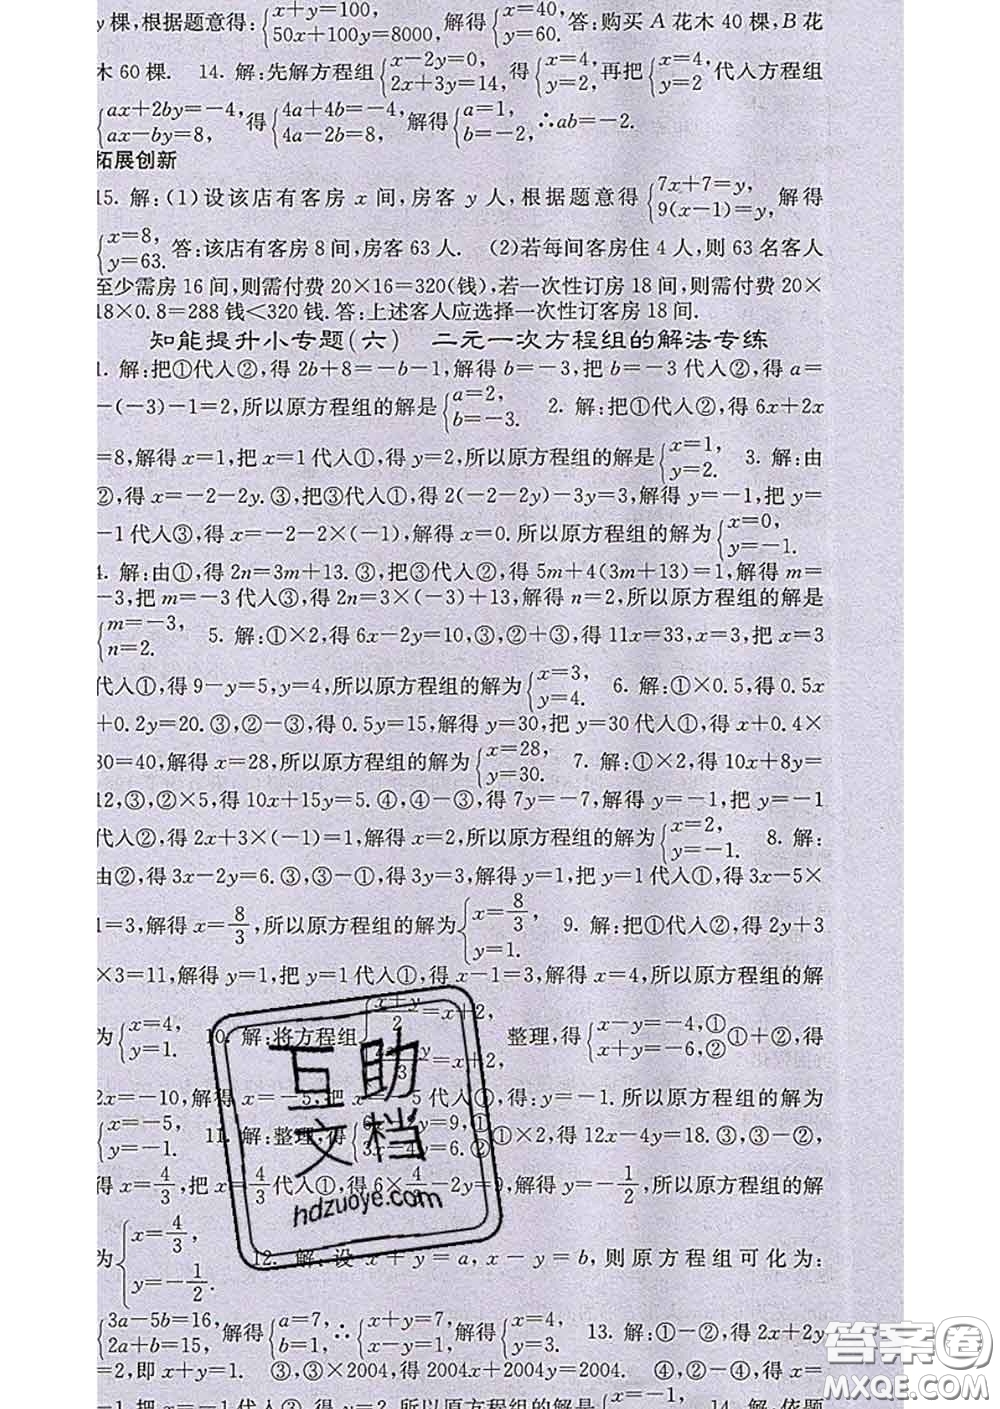 y棵,根据题意得:{x+y=100, 50x+100y=8000,解得{x=40, y=60.答:购买A花木40棵,B花
木60棵. 14. 解:先解方程组{x-2y=0, 2x+3y=14,得{x=4, y=2,再把{x=4, y=2代入方程组
{ax+2by=-4, ax-by=8,得{4a+4b=-4, 4a-2b=8,解得{a=1, b=-2,∴ab=-2.
拓展创新
15. 解:(1)设该店有客房x间,房客y人,根据题意得{7x+7=y, 9(x-1)=y,解得
{x=8, y=63.答:该店有客房8间,房客63人. (2)若每间客房住4人,则63名客人
至少需房16间,则需付费20×16=320(钱),若一次性订房18间,则需付费20×
18×0.8=288钱<320钱.答:上述客人应选择一次性订客房18间.
知能提升小专题(六) 二元一次方程组的解法专练
1. 解:把①代入②,得2b+8=-b-1,解得b=-3,把b=-3代入①,得a=
-(-3)-1=2,所以原方程组的解是{a=2, b=-3. 2. 解:把①代入②,得6x+2x
=8,解得x=1,把x=1代入①,得y=2,所以原方程组的解是{x=1, y=2. 3. 解:由
②,得x=-2-2y.③,把③代入①,得2(-2-2y)-3y=3,解得y=-1,把y=
-1代入③,得x=-2-2×(-1),解得x=0.所以原方程组的解为{x=0, y=-1.
4. 解:由①,得2n=3m+13.③,把③代入②,得5m+4(3m+13)=1,解得m=
-3,把m=-3代入③,得2n=3×(-3)+13,解得n=2,所以原方程组的解是
{m=-3, n=2. 5. 解:①×2,得6x-2y=10,③,②+③,得11x=33,x=3,把x=3
代入①,得9-y=5,y=4,所以原方程组的解为{x=3, y=4. 6. 解:①×0.5,得0.5x
+0.2y=20.③,②-③,得0.5y=15,解得y=30,把y=30代入①,得x+0.4×
30=40,解得x=28,所以原方程组的解为{x=28, y=30. 7. 解:①×2,得10x+8y=
12,③,②×5,得10x+15y=5.④,④-③,得7y=-7,解得y=-1,把y=-1
代入②,得2x+3×(-1)=1,解得x=2,所以原方程组的解为{x=2, y=-1. 8. 解:
由②,得3x-2y=6.③,③-①,得3y=3,解得y=1,把y=1代入①,得3x-5×
1=3,解得x=8/3,所以原方程组的解为{x=8/3, y=1. 9. 解:把①代入②,得2y+3
×3=11,解得y=1,把y=1代入①,得x-1=3,解得x=4,所以原方程组的解
为{x=4, y=1. 10. 解:将方程组 整理,得{x-y=-4,① x+y=-6,②①+②,得
2x=-10,解得x=-5,把x=-5代入①,得:y=-1.所以原方程组的解为
{x=-5, y=-1. 11. 解:整理,得{6x-2y=9,① 3x-4y=6.②①×2,得12x-4y=18.③,③-②,
得x=4/3,把x=4/3代入①,得6×4/3-2y=9,解得y=-1/2,所以原方程组的解
为{x=4/3, y=-1/2. 12. 解:设x+y=a,x-y=b,则原方程组可化为:
{3a-5b=16, 2a+b=15,解得{a=7, b=1,∴{x+y=7, x-y=1,解得{x=4, y=3. 13. 解:①-②,得2x+2y
=2,即x+y=1. ③,③×2004,得2004x+2004y=2004. ④,②-④,得x=
14. 解:依题
互助文档
hdzuoye.com
答案圈
MXQE.COM